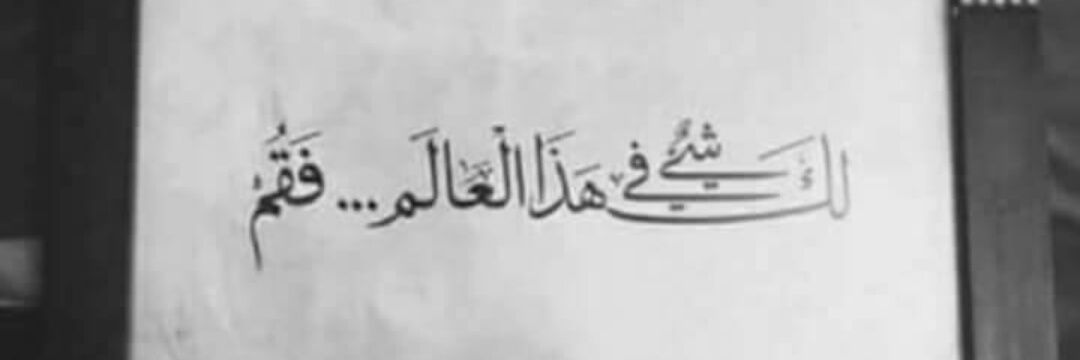 لَكَ شيءٌ في هَذَا الْعَالَم... فَقُمْ